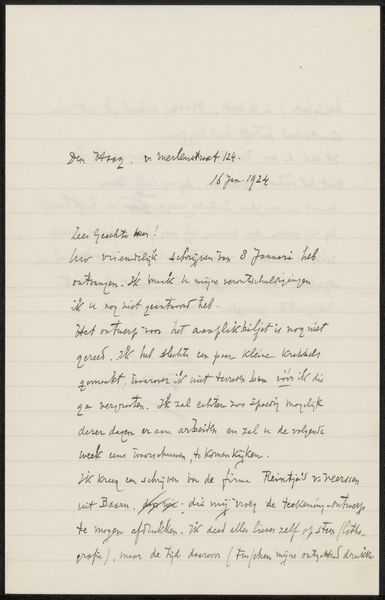 Den Haag. v Merlenstraat 124.
16 Jan. 1924
Zeer Geachte heer!
Uw vriendelijk schrijven van 8 Januari heb
ontvangen. Ik maak u mijne verontschuldigingen
ik u nog niet geantwoord heb.
Het ontwerp voor het aanplakbiljet is nog niet
gereed. Ik heb slechts een paar kleine krabbels
gemaakt, waarover ik niet tevreden ben vóór ik die
ga vergrooten. Ik zal echter zoo spoedig mogelijk
dezer dagen er aan arbeiden en zal u de volgende
week eens waarschuwen, te komen kijken.
Ik kreeg een schrijven van de firma v Weerssen
uit Baarn, die mij vroeg de teekening-ontwerp
te mogen afdrukken. Ik deed alles liever zelf op steen (litho-
grafie), maar de tijd daarvoor (tusschen mijne ontzettend drukke